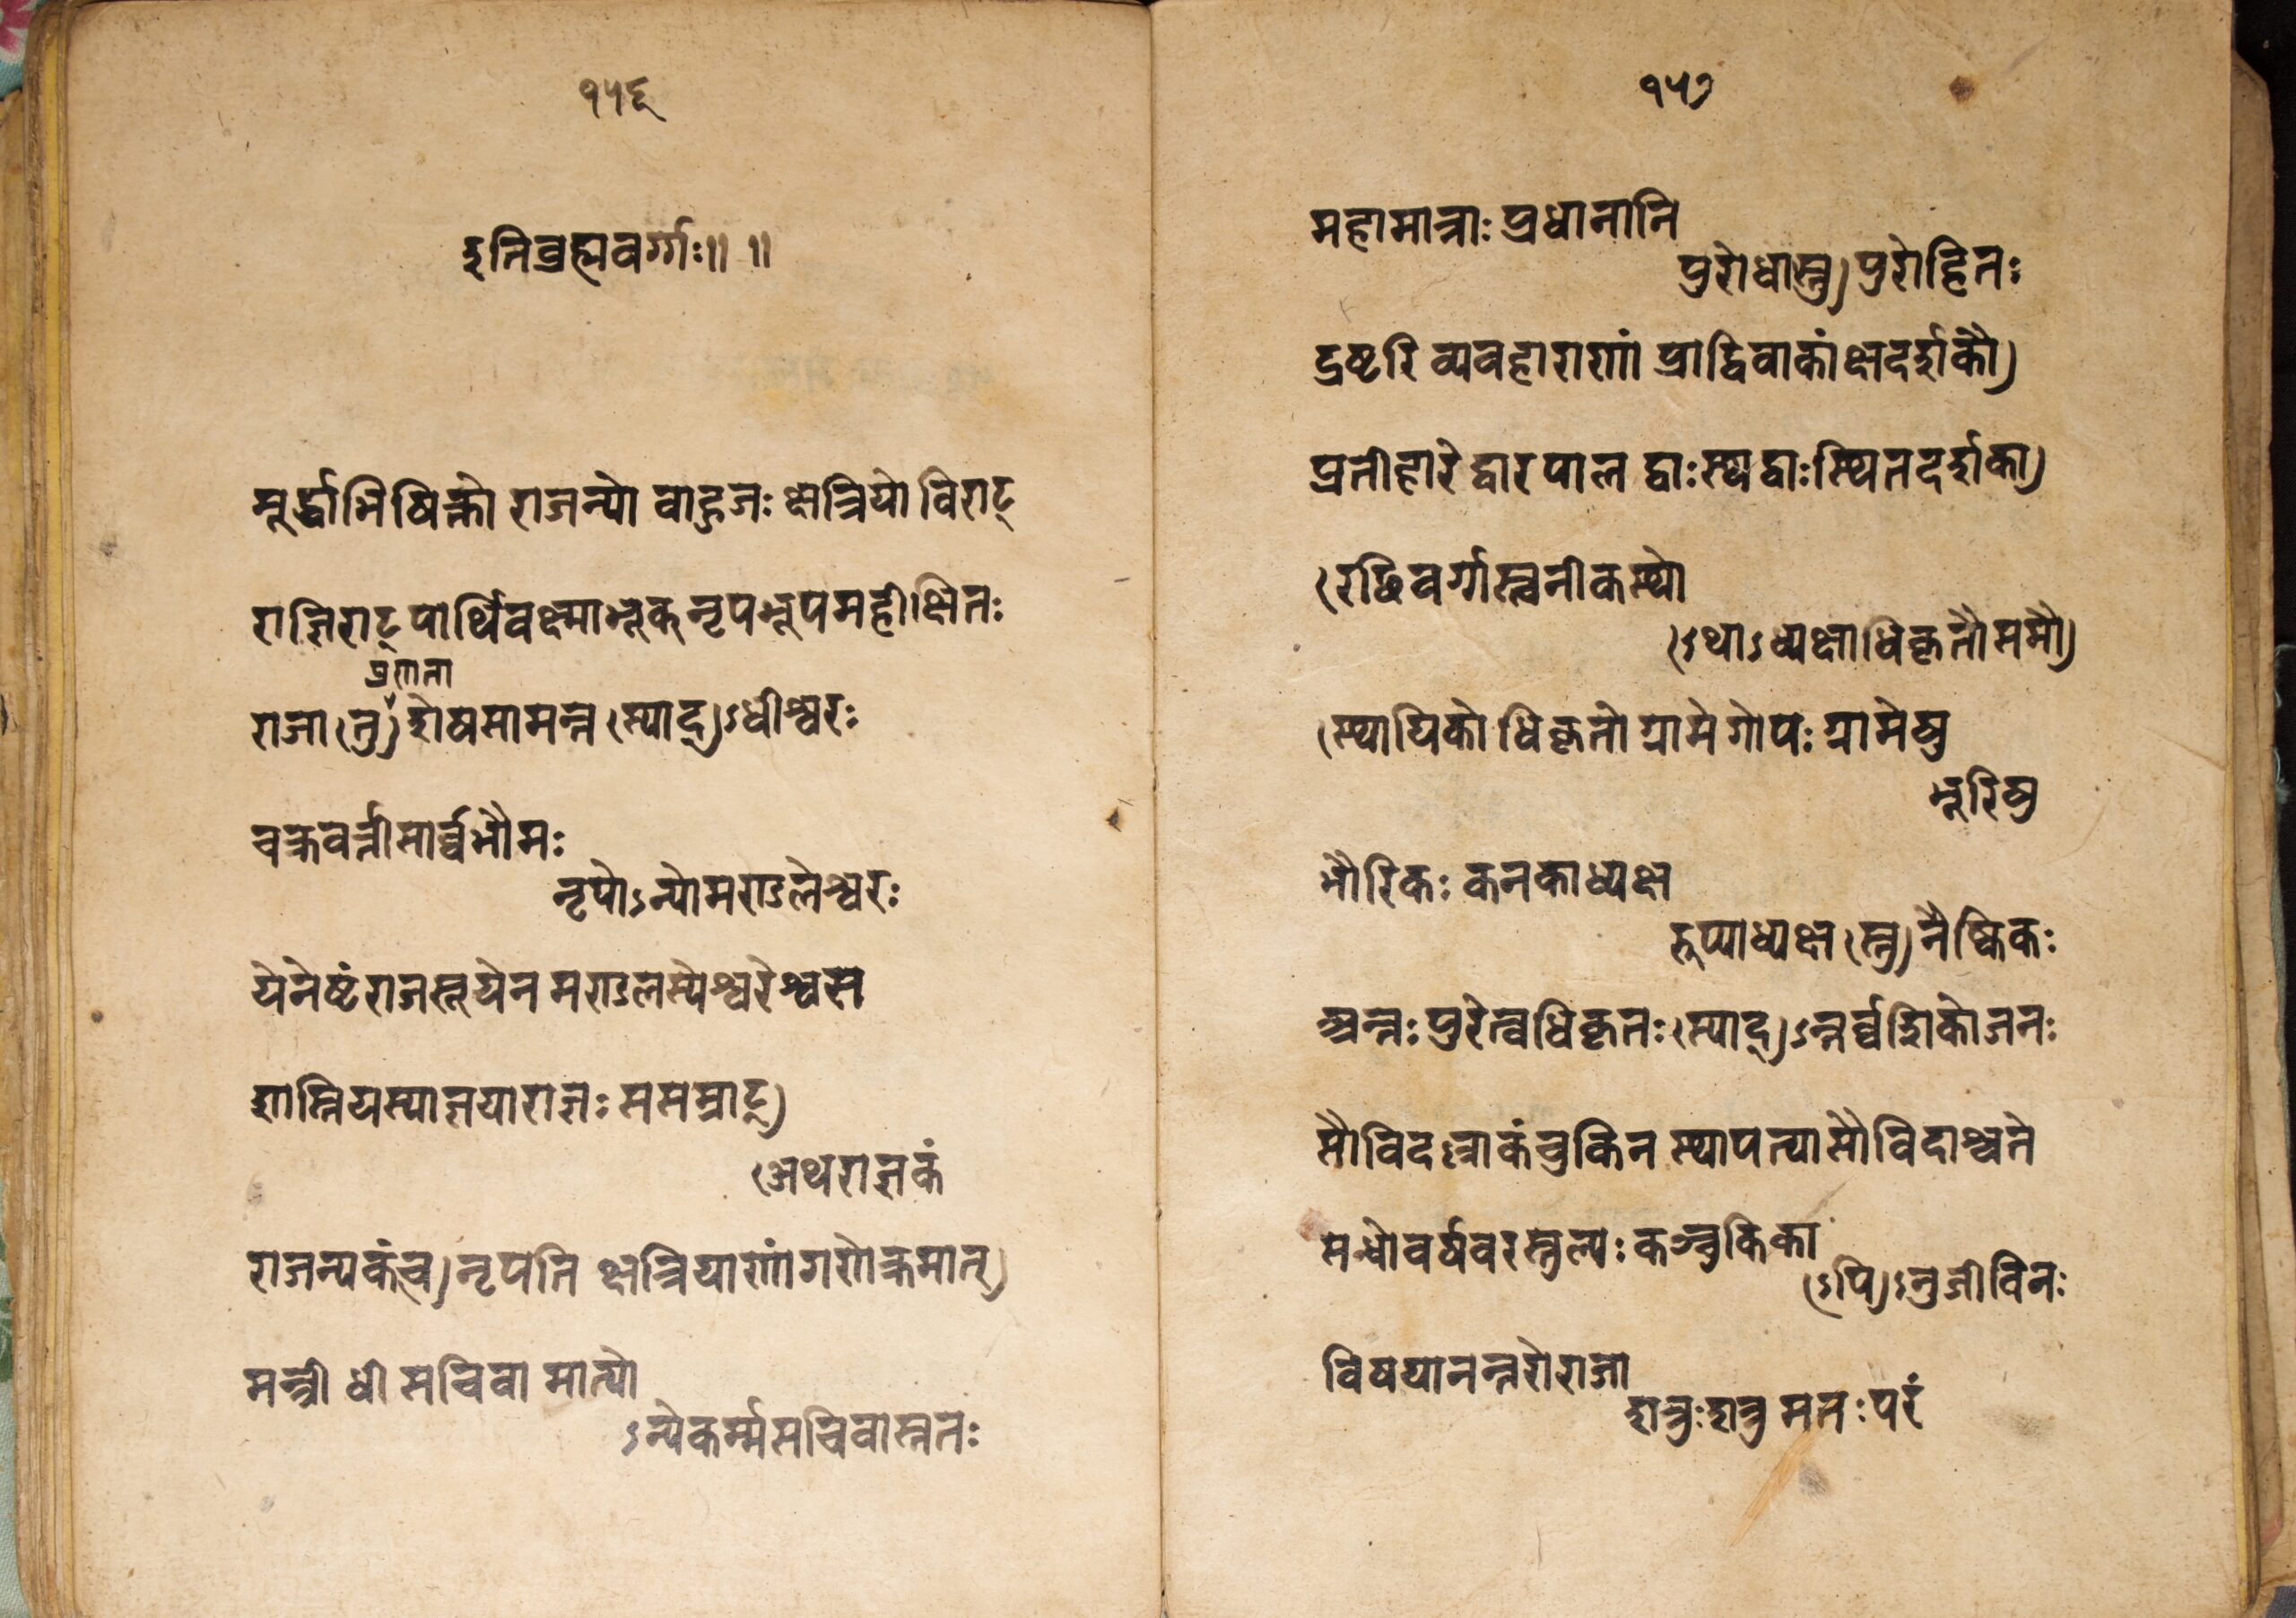 १५६
इतिब्रह्मवर्ग्गः॥ ॥
मूर्द्धाभिषिक्तो राजन्यो बाहुजः क्षत्रियो विराट्
राज्ञिराट्पार्थिवक्ष्माभृक्तनृपभूपमहीक्षितः
प्रणाता
राजा(तु)शेषसामन्त(स्याद्)ऽधीश्वरः
चक्रवर्त्तीसार्व्वभौमः
नृपोऽन्योमण्डलेश्वरः
येनेष्टंराजसूयेन मण्डलस्येश्वरेश्वस
शास्तियस्याज्ञयाराज्ञः ससम्राट्)
(अथराजकं
राजन्यकंच)नृपति क्षत्रियाणांगणेक्रमात्)
मन्त्री धी सचिवा मात्यो
ऽन्येकर्म्मसचिवास्ततः
१५७
महामात्राः प्रधानानि
पुरोधास्तु)पुरोहितः
द्रष्टरि व्यवहाराणां प्राद्विवाकांक्षदर्शकौ)
प्रतीहारे द्वारपाल द्वाःस्थद्वाःस्थितदर्शका)
(रक्षिवर्ग्गास्त्वनीकस्थो
(ऽथाऽध्यक्षाधिकृतौसमौ)
(स्थायिकोधिकृतो ग्रामे गोपः ग्रामेषु
भूरिषु
भौरिकः कनकाध्यक्ष
रूप्याध्यक्ष(स्तु)नैष्किकः
अन्तःपुरेत्वधिकृतः(स्याद्)ऽन्तर्व्वंशिकोजनः
सौविदल्लाकंचुकिन स्थापत्यासौविदाश्चते
सन्धोवर्षवरस्तुल्यः कञ्चुकिका
(ऽपि)ऽनुजीविनः
विषयानन्तरोराजा
शत्रुःशत्रुमतःपरं